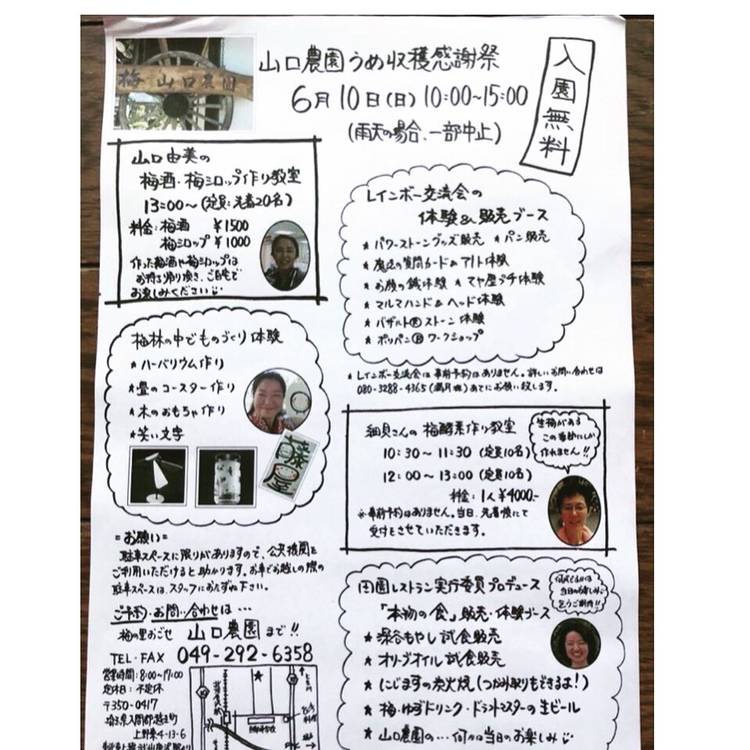 梅 山口農園
山口農園うめ収穫感謝祭
6月10日(日) 10:00~15:00
(雨天の場合、一部中止)
入園無料
山口由美の
梅酒・梅シロップ作り教室
13:00~(定員:先着20名)
料金:梅酒 ¥1500
梅シロップ ¥1000
作った梅酒や梅シロップは
お持ち帰り頂き、ご自宅で
お楽しみください
レインボー交流会の
体験&販売ブース
★パワーストーングッズ販売 ★パン販売
★魔法の質問カード&アート体験
★お顔の鍼体験 ★てや屋プチ体験
★マルマハンド&ヘッド体験
★バザルト㊊ストーン体験
★ポリパン㊐ワークショップ
★レインボー交流会は事前予約はありません。詳しいお問い合わせは
080-3288-4365(満月堀)あてにお願い致します。
梅林の中でものづくり体験
★ハーバリウム作り
★畳のコースター作り
★木のおもちゃ作り
★笑い文字
藤田屋
細貝さんの梅酵素作り教室
10:30~11:30(定員10名)
12:00~13:00(定員10名)
料金:1人¥4000-
※事前予約はありません。当日、先着順にて
受付をさせていただきます。
生梅がある
この季節にしか
作れません!!
=お願い=
駐車スペースに限りがありますので、公共機関を
ご利用いただけると助かります。お車でお越しの際の
駐車スペースは、スタッフにおたずね下さい。
ご予約・お問い合わせは…
梅の里おごせ 山口農園まで!!
TEL・FAX 049-292-6358
営業時間:8:00~17:00
定休日:不定休
〒350-0417
埼玉県入間郡越生町
上野東4-13-6
田園レストラン実行委員プロデュース
「本物の食」販売・体験ブース
★深谷もやし試食販売
★オリーブオイル試食販売
★にじますの炭火焼(つかみ取りもできるよ!)
★梅・ゆずドリンク・ドラフトマスターの生ビール
★山口農園の…何かは当日のお楽しみ